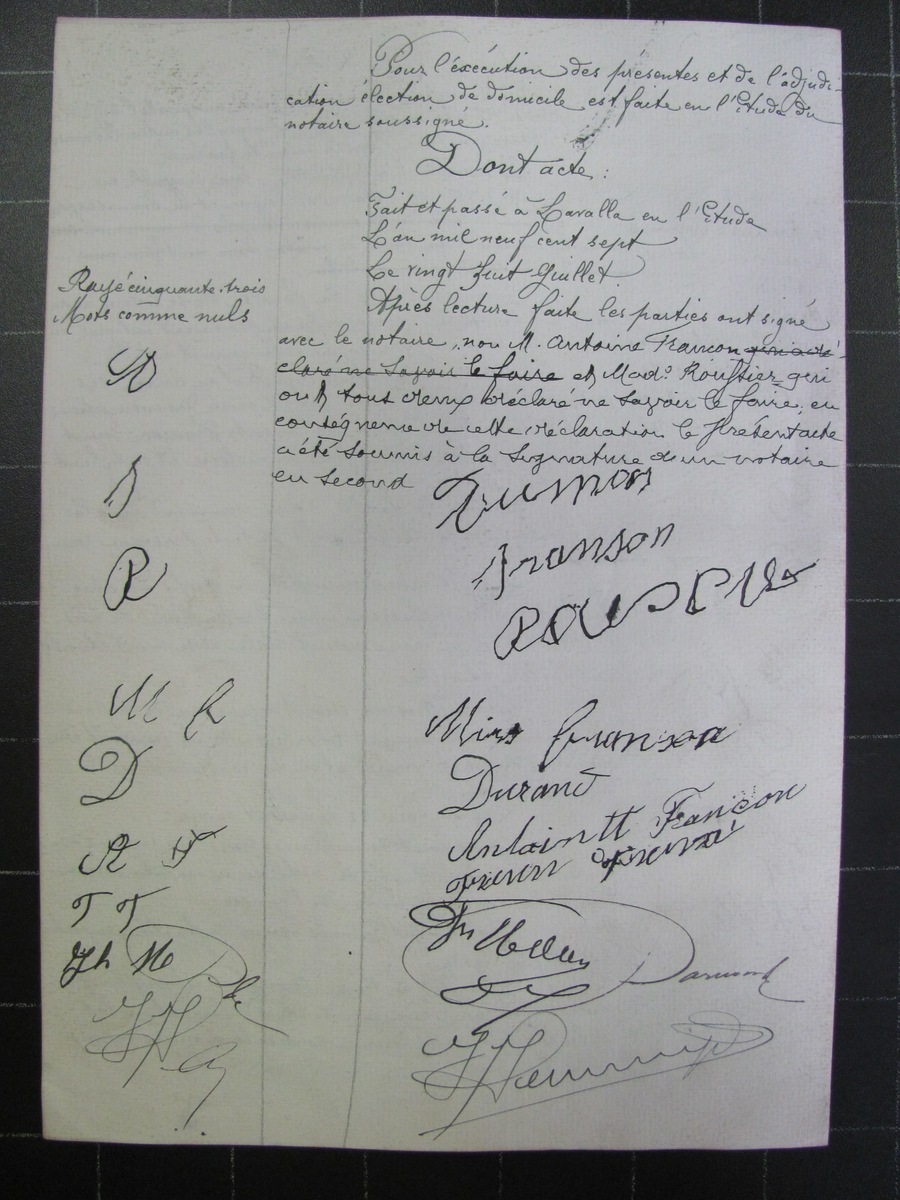 Pour l'éxécution des présentes et de l'adjudi-
cation élection de domicile est faite en l'Etude du
notaire soussigné.
Dont acte:
Fait et passé à Lavalla en l'Etude
L'an mil neuf cent sept
Le vingt huit Juillet
Après lecture faite les parties ont signé
avec le notaire, non M. Antoine Francon qui a dé-
claré ne savoir le faire et Mad.e Rouftier qui
ont tous deux déclaré ne savoir le faire, en
conséquence de cette déclaration le présent acte
a été soumis à la signature d'un notaire
en second
Rayé cinquante-trois
Mots comme nuls
D
f
R
M f
D
A F
T F
franson
franson
Durand
Antoinett Françon